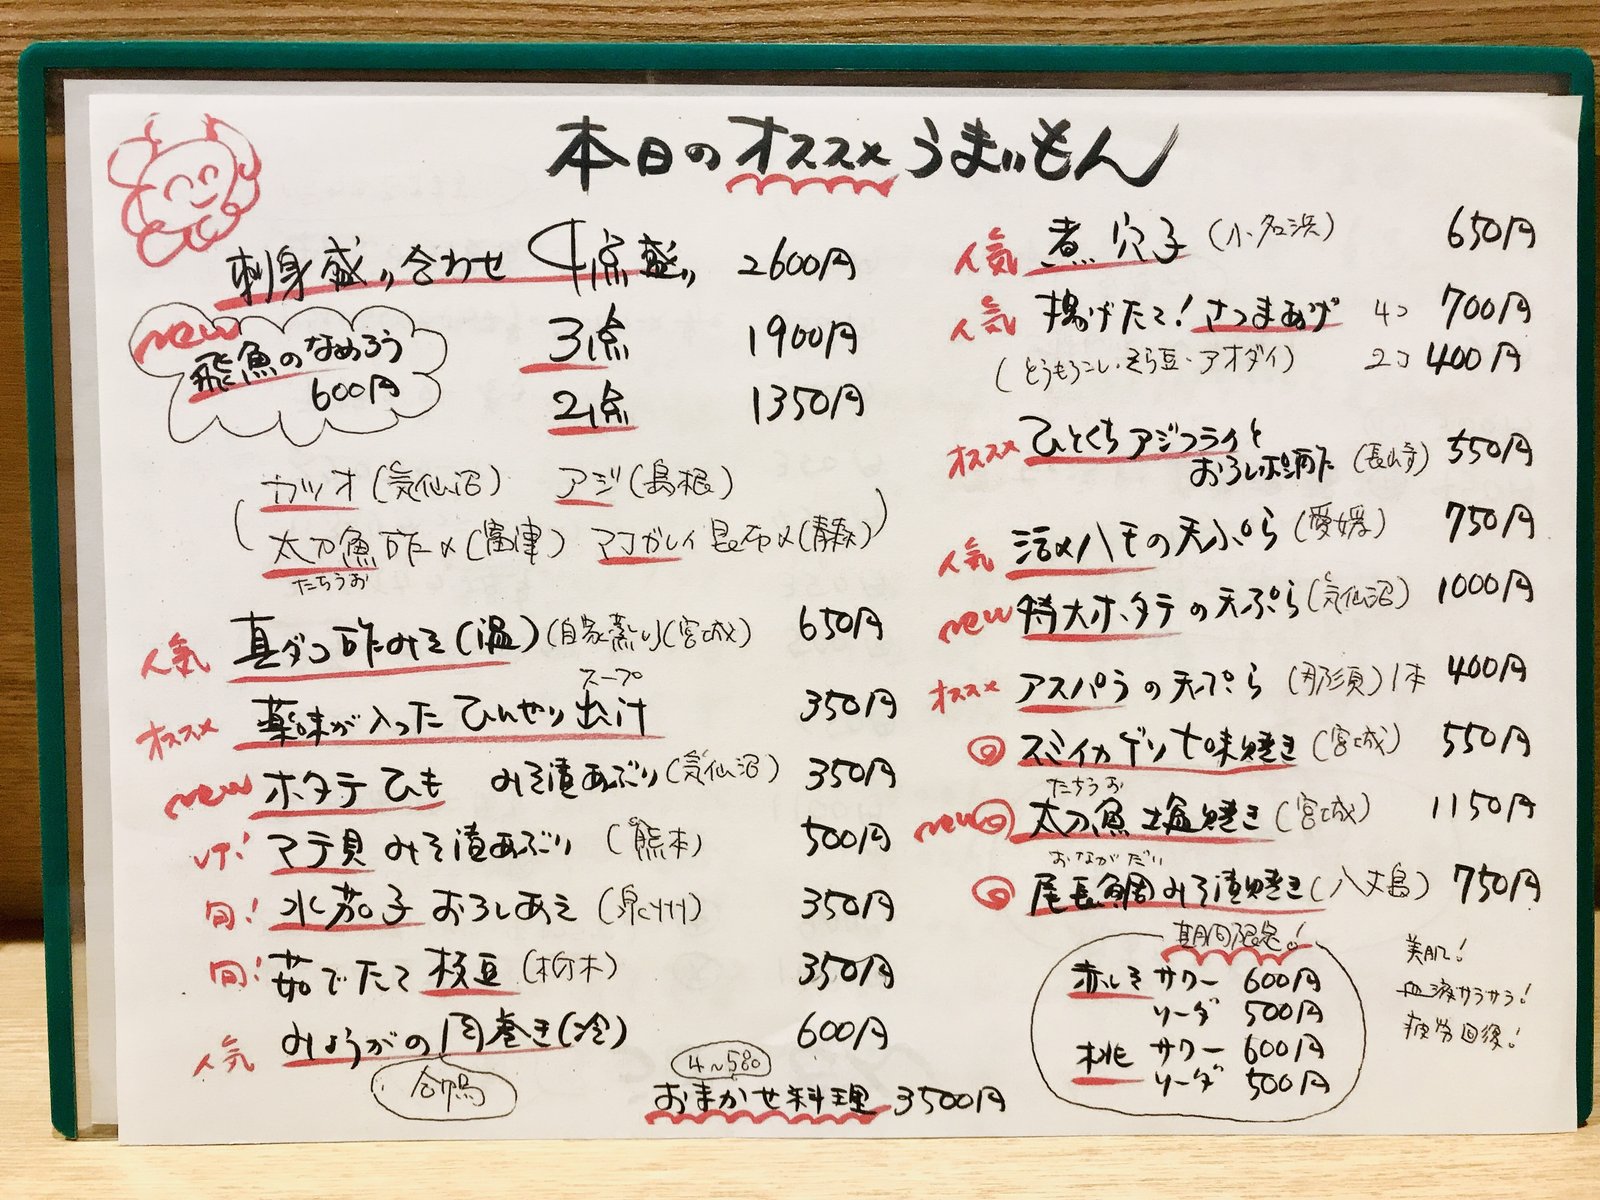 本日のオススメうまいもん
刺身盛り合わせ 4点盛り 2600円
3点 1900円
2点 1350円
new
飛魚のなめろう
600円
(カツオ(気仙沼) アジ(島根)
太刀魚酢〆(富津) マコガレイ昆布〆(青森))
たちうお
人気 真ダコ酢みそ(温)(自家蒸し)(宮城) 650円
スープ
オススメ 薬味が入ったひんやり出汁 350円
new ホタテひも みそ漬あぶり(気仙沼) 350円
レア! マテ貝 みそ漬あぶり (熊本) 500円
旬! 水茄子おろしあえ (泉州) 350円
旬! 茹でたて枝豆 (栃木) 350円
人気 みょうがの肉巻き(冷) 600円
合鴨
4〜5品
おまかせ料理 3500円
人気 煮穴子 (小名浜) 650円
人気 揚げたて!さつまあげ 4コ 700円
(とうもろこし・そら豆・アオダイ) 2コ 400円
オススメ ひとくちアジフライと
おろしポン酢 (長崎) 550円
人気 活〆ハモの天ぷら (愛媛) 750円
new 特大ホタテの天ぷら(気仙沼) 1000円
オススメ アスパラの天ぷら (那須)1本 400円
スミイカゲソ七味焼き (宮城) 550円
たちうお
new 太刀魚塩焼き (宮城) 1150円
おながだい
尾長鯛みそ漬焼き(八丈島) 750円
期間限定!
赤しそ サワー 600円
ソーダ 500円
桃 サワー 600円
ソーダ 500円
美肌!
血液サラサラ!
疲労回復!